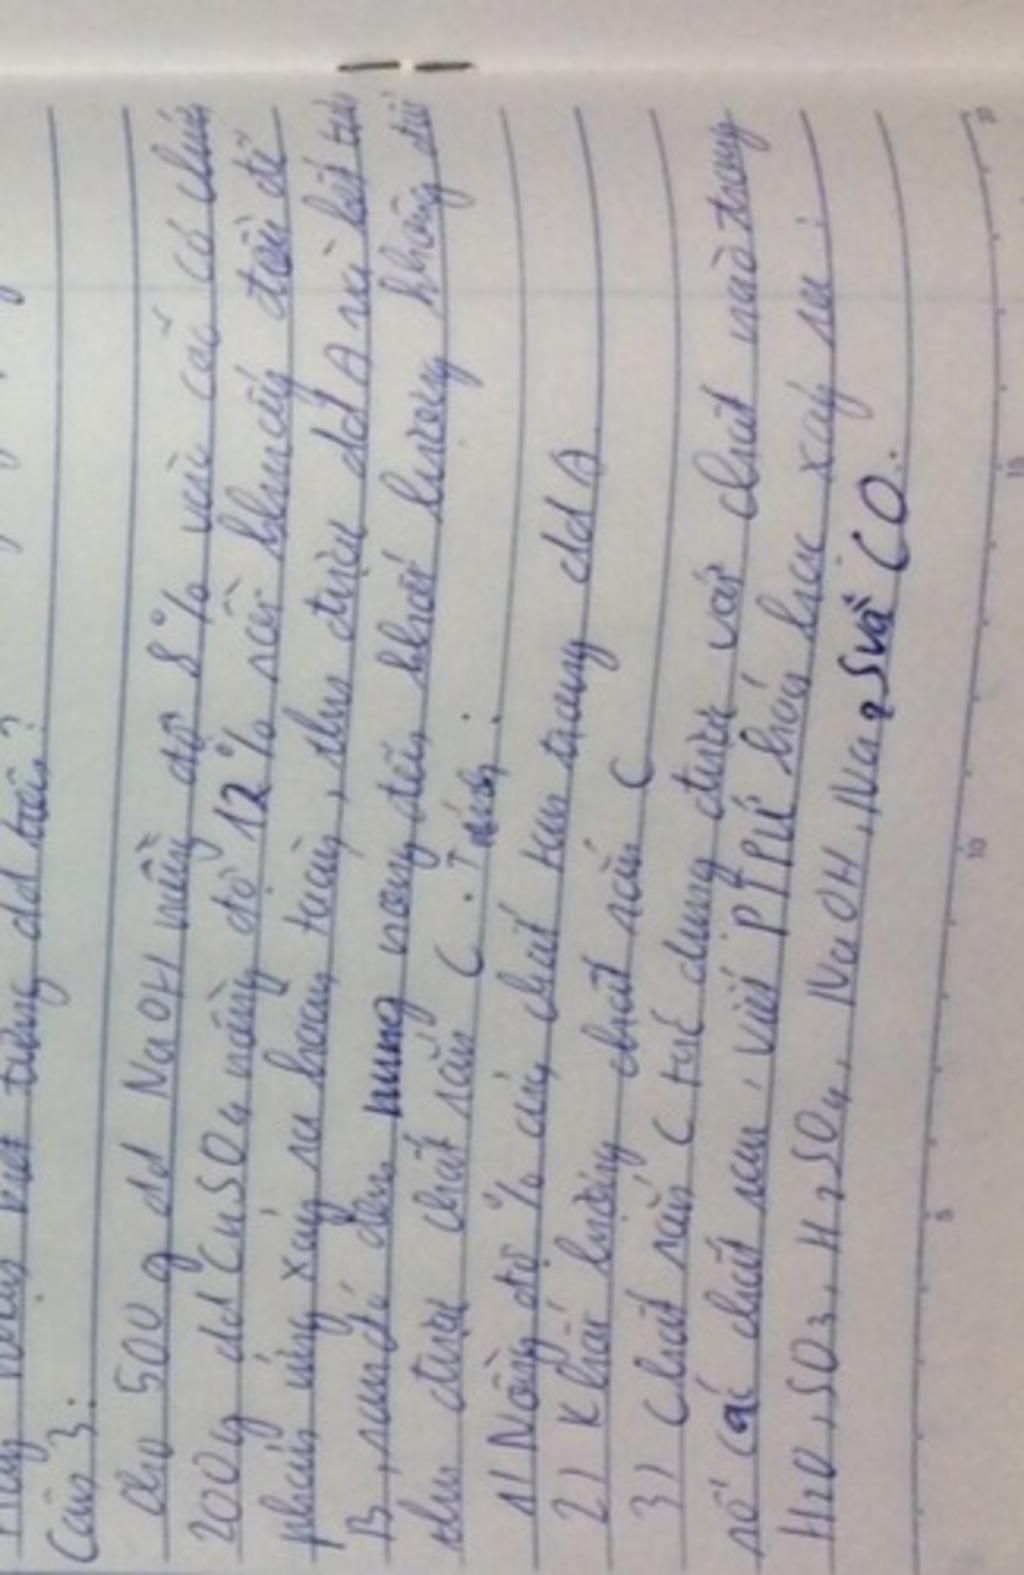 dd
Câu 3:
Cho 500 g dd NaOH nồng độ 8% vào cốc có chứa
200 g dd CuSO4 nồng độ 12% rồi khuấy đều để
phản ứng xảy ra hoàn toàn, thu được dd A và kết tủa
B, sau đó đem nung nóng đến khối lượng không đổi
thu được chất rắn C. Tính:
1) Nồng độ % các chất tan trong dd A.
2) Khối lượng chất rắn C
3) Chất rắn C tác dụng được với chất nào trong
số các chất sau, viết PTPƯ hoá học xảy ra:
H2O, SO3, H2SO4, NaOH, Na2S và CO.
5
10
15